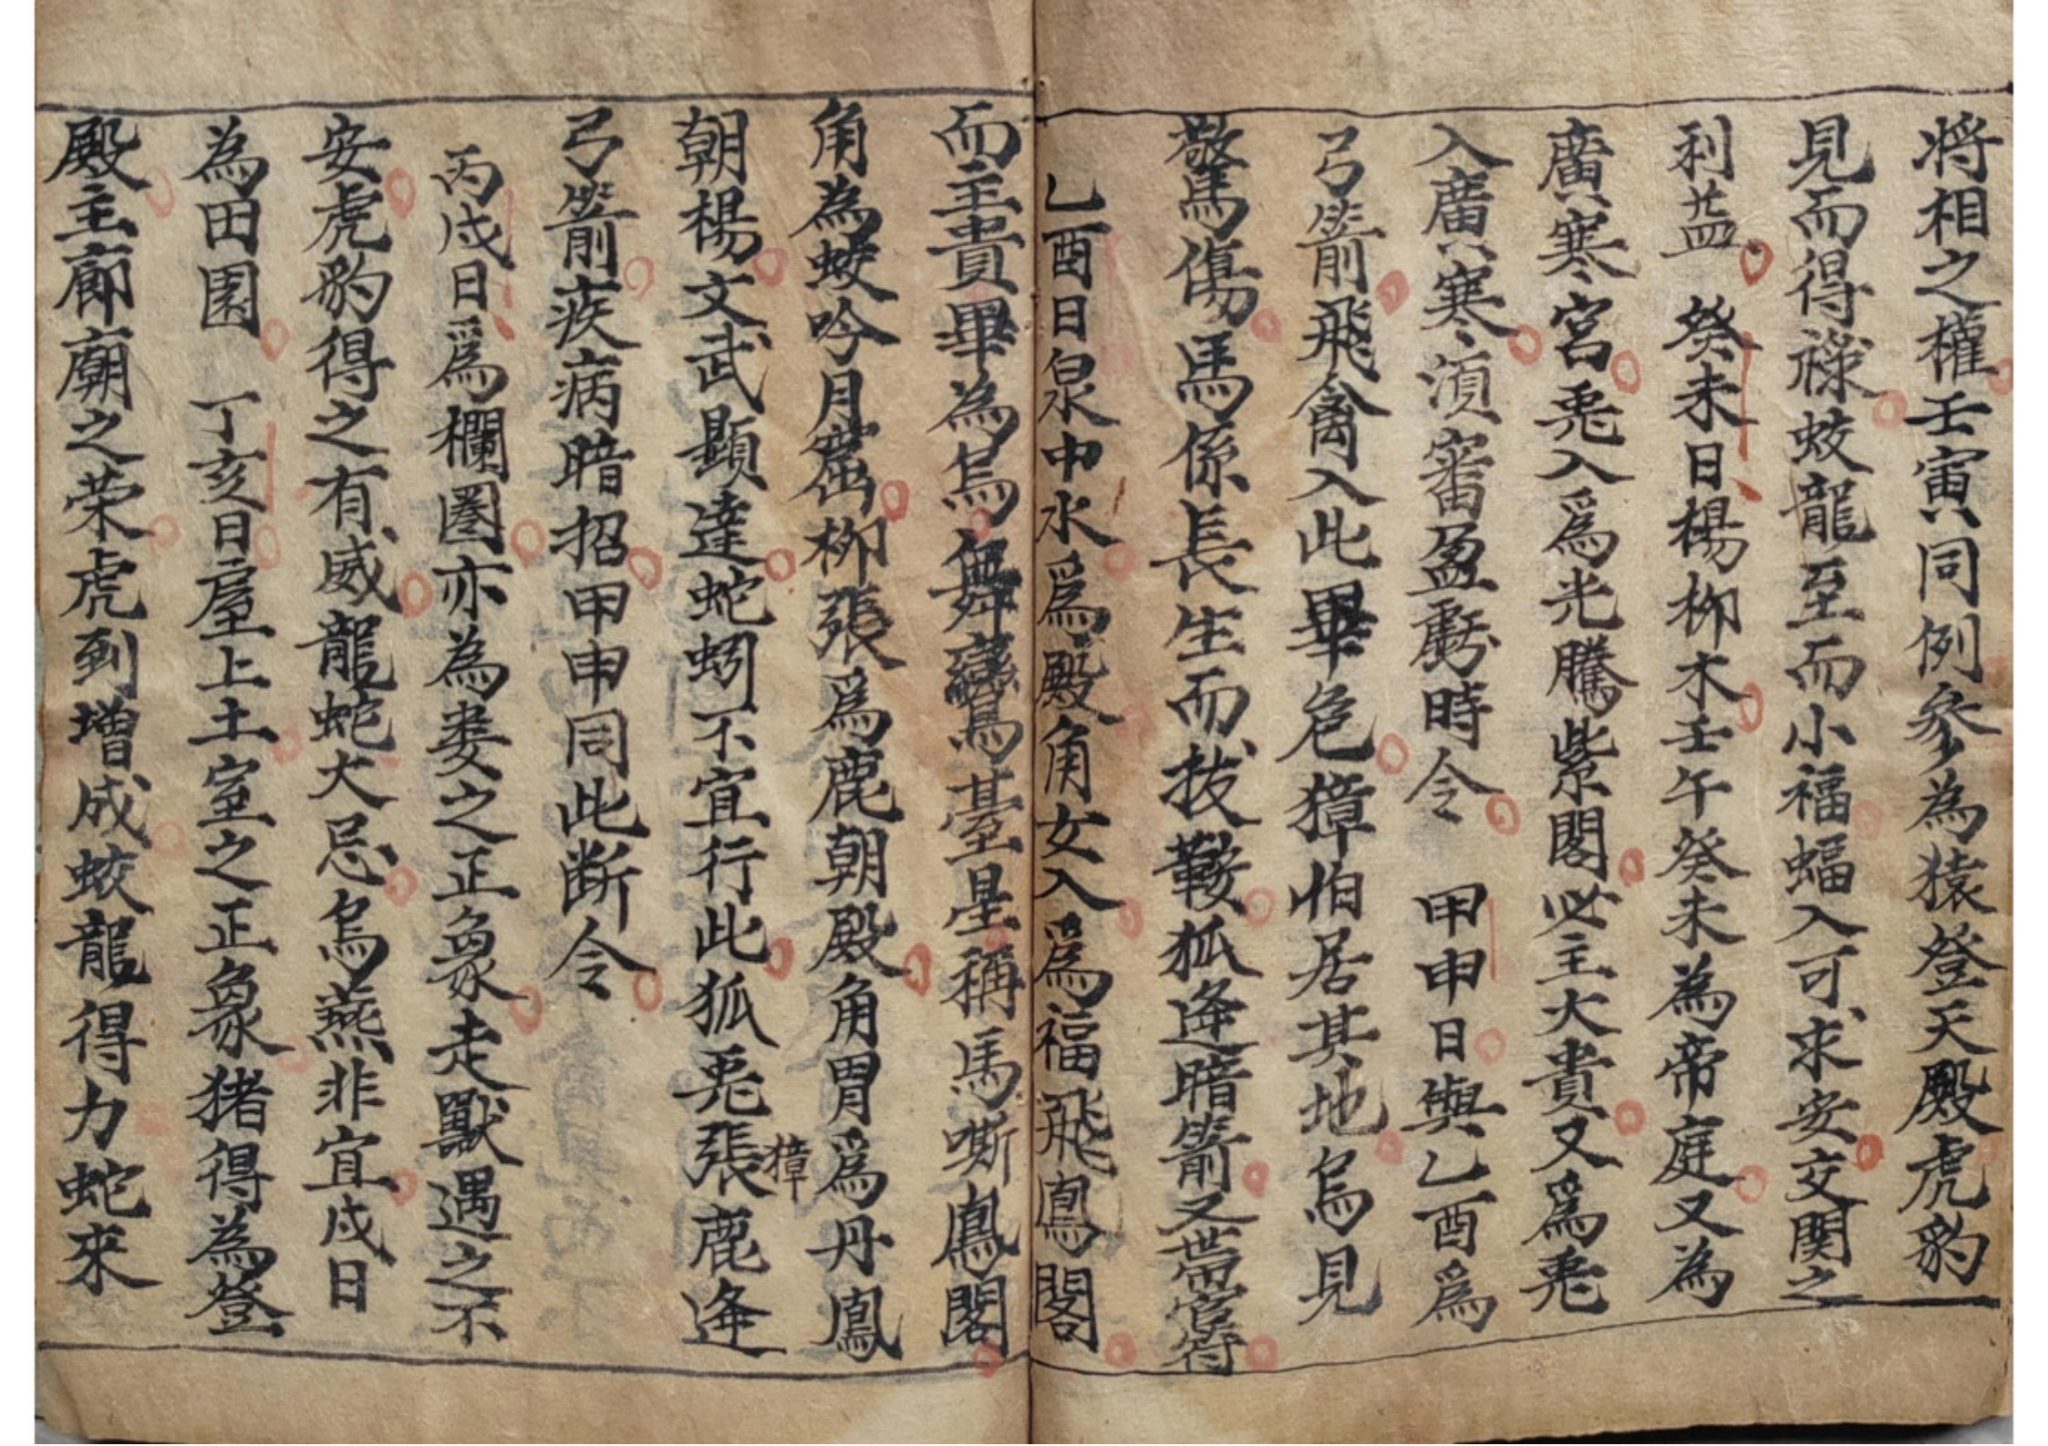 将相之權壬寅同例參為猿登天殿虎豹
見而得祿蛟龍至而小福蝠入可求安交関之
利益 癸未日楊柳木壬午癸未為帝庭又為
廣寒宮兎入爲光騰紫閣必主大貴又爲兎
入廣寒須審盈虧時令 甲申日與乙酉爲
弓箭飛禽入此畢危獐怕居其地烏見
驚傷馬係長生而披鞍狐逄暗箭又帶官符
乙酉日泉中水爲殿角女入爲福飛鳳閣
而主貴畢為烏舞鸞臺星稱馬嘶鳳閣
角為蛟吟月窟柳張爲鹿朝殿角胃爲丹鳳
朝楊文武顯達蛇蚓不宜行此狐兎張獐鹿逄
弓箭疾病暗招甲申同此断令
丙戌日爲欄圏亦為娄之正象走獸遇之不
安虎豹得之有威龍蛇大忌烏燕非宜戌日
為田園 丁亥日屋上土室之正象猪得為登
殿主廊廟之荣虎到增成蛟龍得力蛇來